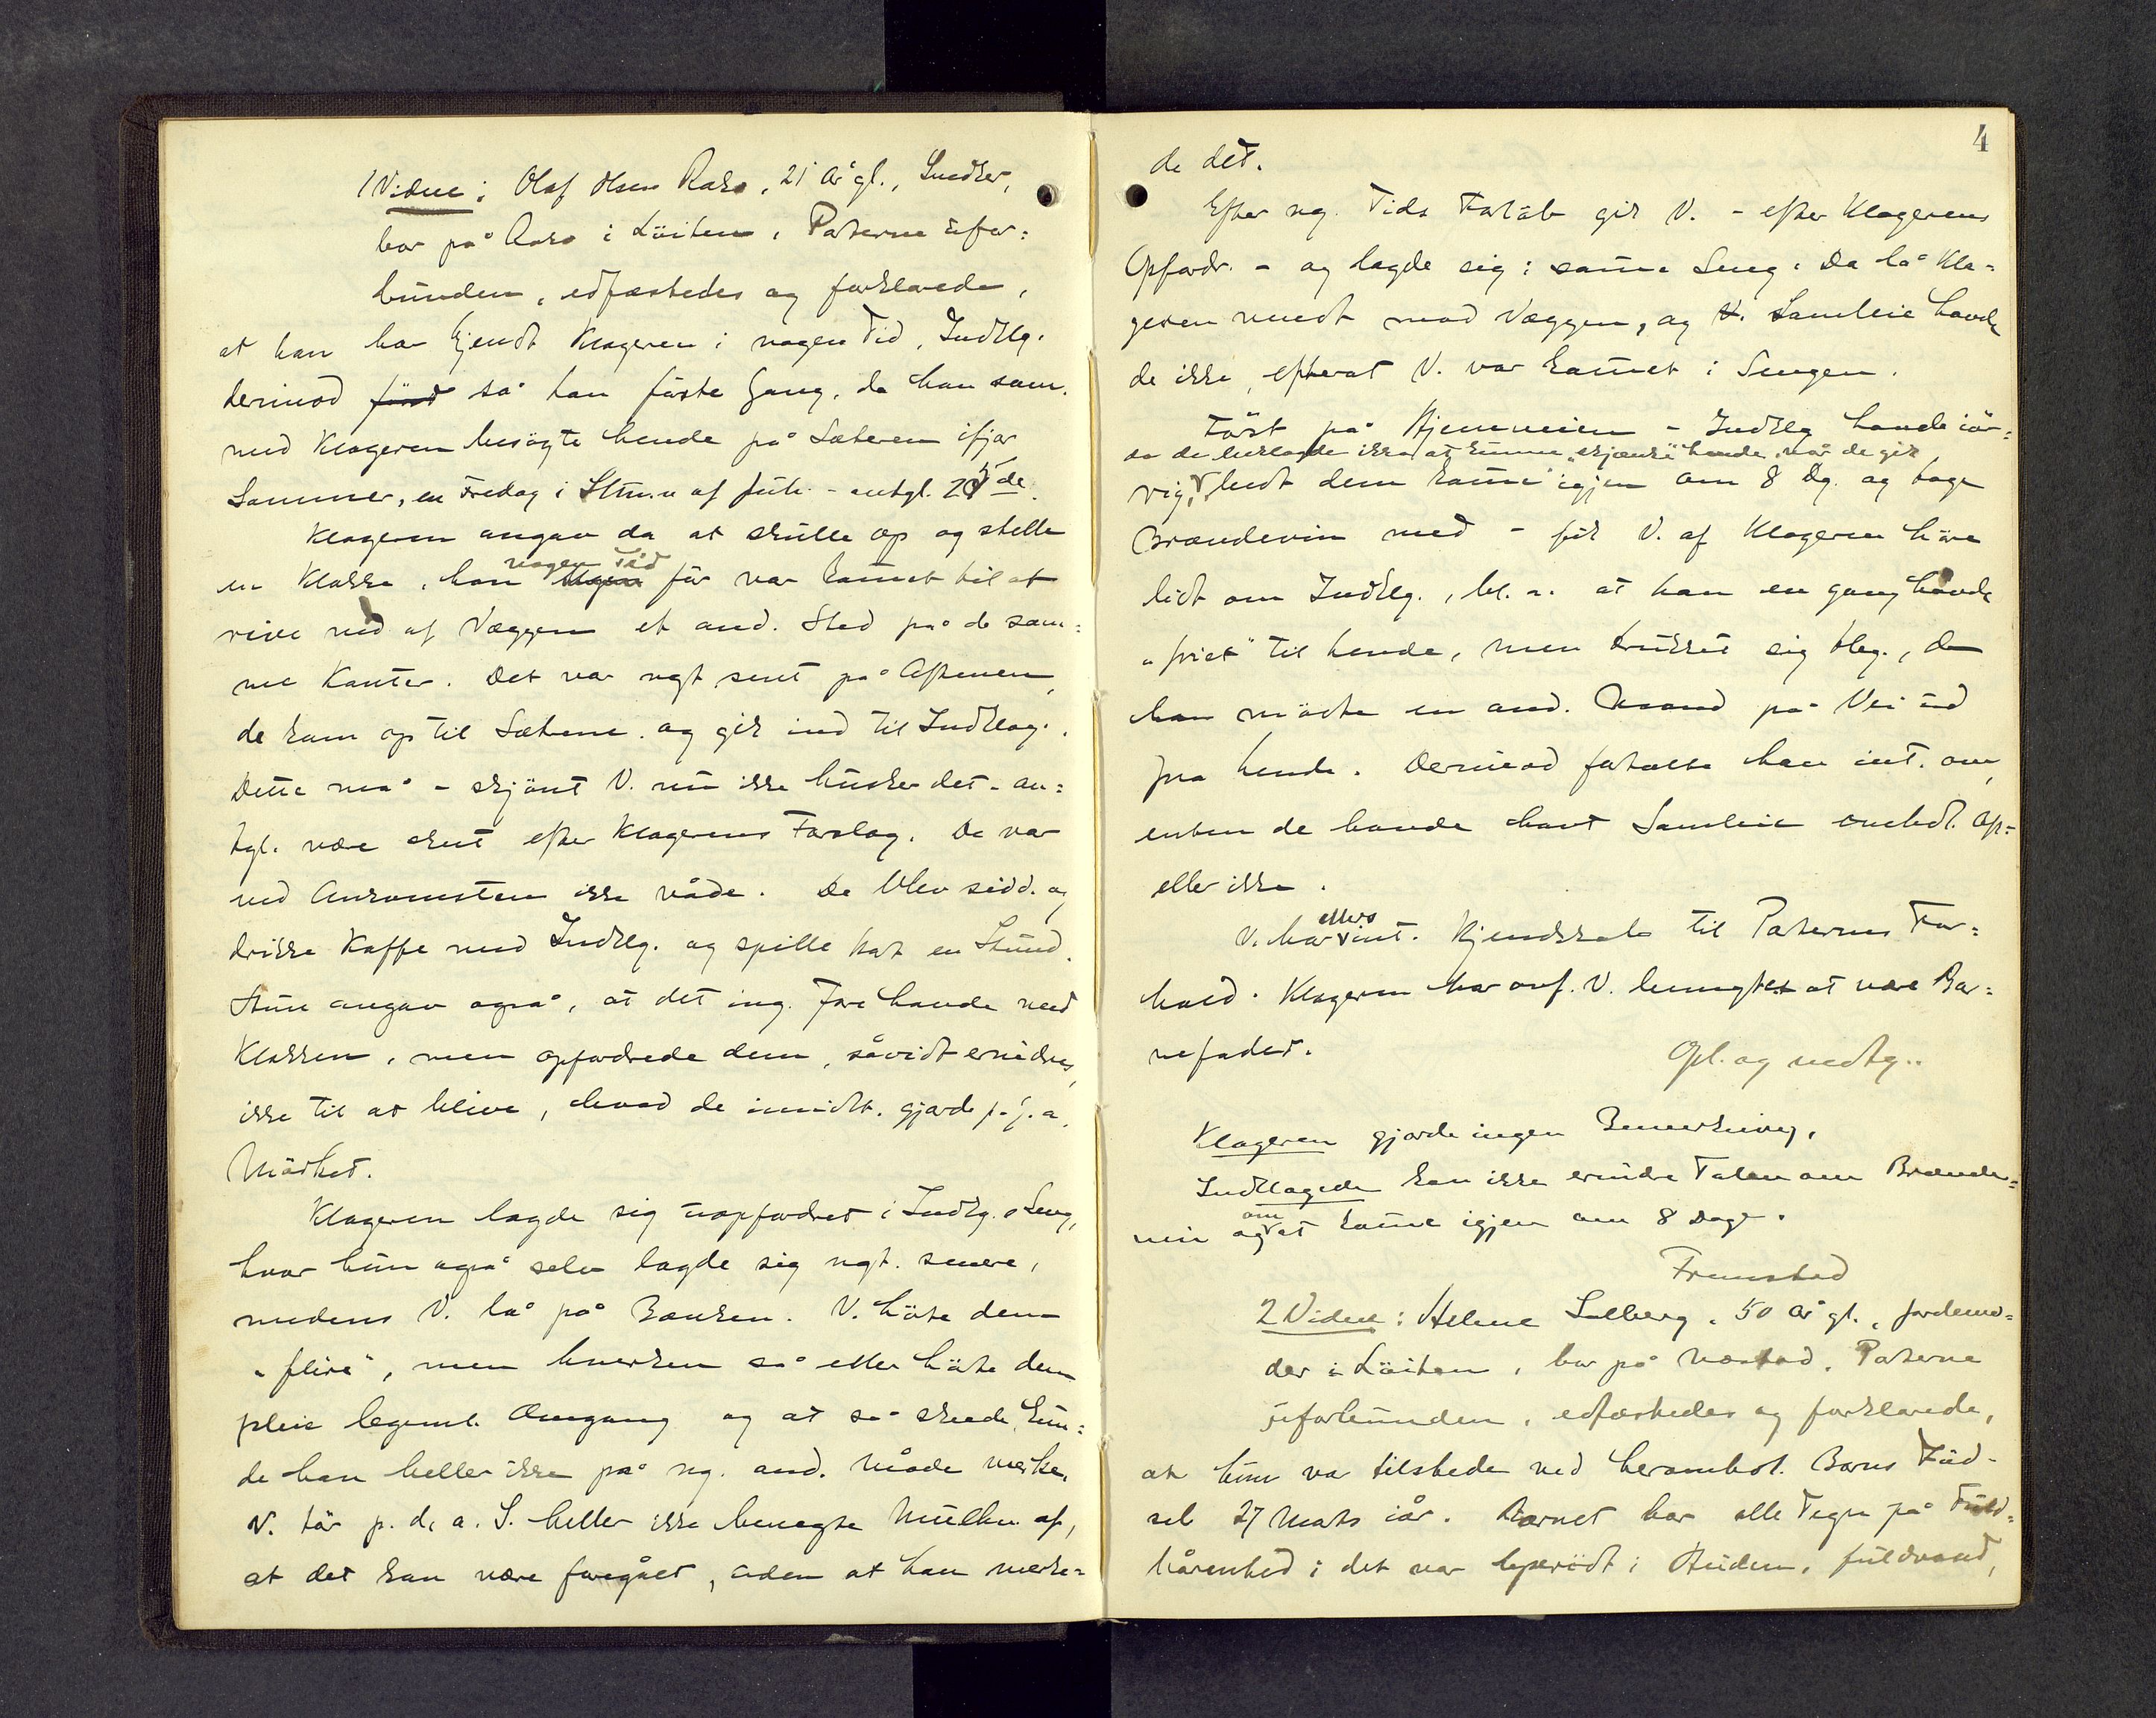 1 Vidne: Olaf Olsen Raks, 21 år gl., Snedker,
bor på Aaks i Löiten, Parterne ufor:
bunden, edfæstedes og forklarede,
at han har kjendt Klageren i nogen Tid, Indklg.
derimod först så han förste Gang, da han sam.
med Klageren besögte hende på Sæteren ifjor
Sommer, en Fredag i Slutn. af Juli - antgl. 25de.
Klageren angav da at skulle op og stelle
en Klokke, han nogen Tid för var kommet til at
rive ned af Væggen et and. Sted på de sam:
me Kanter. Det var ngt sent på Aftenen,
de kom op til Sætrene og gik ind til Indklag.
Dette må - skjönt V. nu ikke husker det - an:
tgl. være skeet efter Klagerens Forslag. De var
ved Ankomsten ikke våde. De blev sidd. og
drikke Kaffe med Indklg. og spille Kort en Stund.
Hun angav også, at det ing. Fare havde med
Klokken, men opfordrede dem, såvidt erindres,
ikke til at blive, hvad de imidlt. gjorde p. g. a.
Mörket.
Klageren lagde sig uopfordret i Indklg.s Seng,
hvor hun også selv lagde sig ngt. senere,
medens V. lå på Bænken. V. hörte dem
"flire", men hverken så eller hörte dem
pleie legeml. Omgang og at så skede, kun:
de han heller ikke på ng. and. Måde merke.
V. tör p. d. a. S. heller ikke benegte Mulihn. af,
at det kan være foregået, uden at han merke:
4
de det.
Efter ng. Tids Forlöb gik V. - efter Klagerens
Opfordr. - og lagde sig i samme Seng. Da lå Kla:
geren vendt mod Væggen, og V. Samleie havde
de ikke, efterat V. var kommet i Sengen.
Först på Hjemveien - Indklg havde iör:
da de beklagde ikke at kunne "skjænke" hende, når de gik
rig, bedt dem komme igjen om 8 Dg. og tage
Brændevin med - fik V. af Klageren höre
lidt om Indklg., bl. a. at han en gang havde
"friet" til hende, men trukket sig tbg., da
han mödte en and. Mand på Vei ud
fra hende. Derimod fortalte han int. om,
enten de havde havt Samleie omhdl. Af:
eller ikke.
V. har ellers int. Kjendskab til Parternes For:
hold. Klageren har ovf. V. benegtet at være Bar:
nefader.
Opl. og vedtg..
Klageren gjorde ingen Bemerkning,
Indklagede kan ikke erindre Talen om Brænde:
vin og om at komme igjen om 8 Dage.
Fremstod
2 Vidne: Helene Solberg, 50 år gl., jordemo:
der i Löiten, bor på Næstad, Parterne
uforbunden, edfæstedes og forklarede,
at hun var tilstede ved heromhdl. Barns Föd-
sel 27 Marts iår. Barnet bar alle Tegn på Fuld:
bårenhed; det var lyserödt i Huden, fuldvoxet,